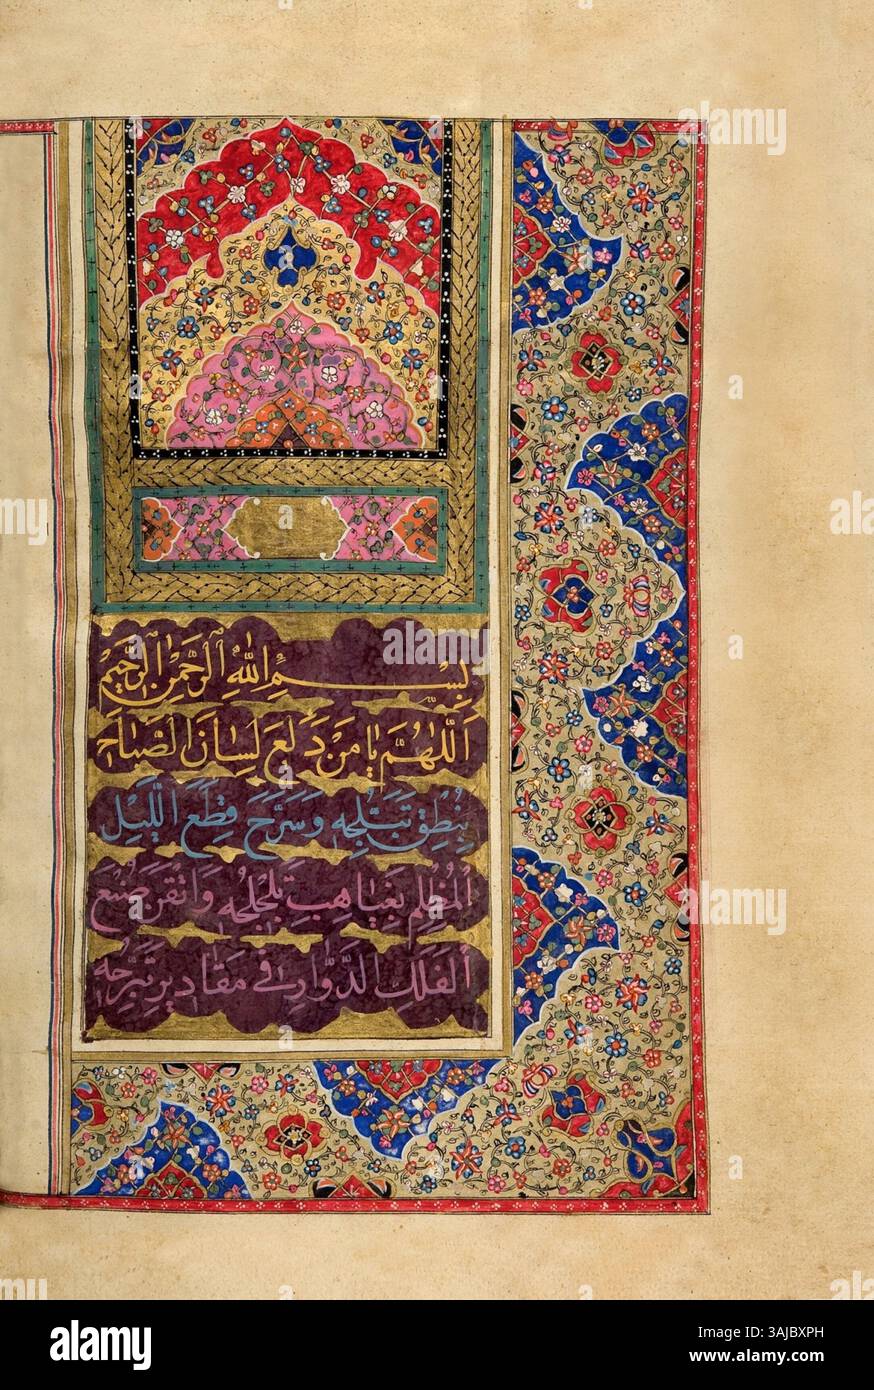 بِسْمِ اللّٰهِ الرَّحْمٰنِ الرَّحِيْمِ
اَللّٰهُمَّ يَا مَنْ دَلَعَ لِسَانَ الصَّبَاحِ
بِنُطْقِ تَبَلُّجِهِ وَسَرَّحَ قِطَعَ اللَّيْلِ
الْمُظْلِمِ بِغَيَاهِبِ تَلَجْلُجِهِ وَاتْقَنَ صُنْعَ
الْفَلَكِ الدَّوَّارِ فِي مَقَادِيرِ تَبَرُّجِهِ
alamy
Image ID: 3AJBXPH
www.alamy.com